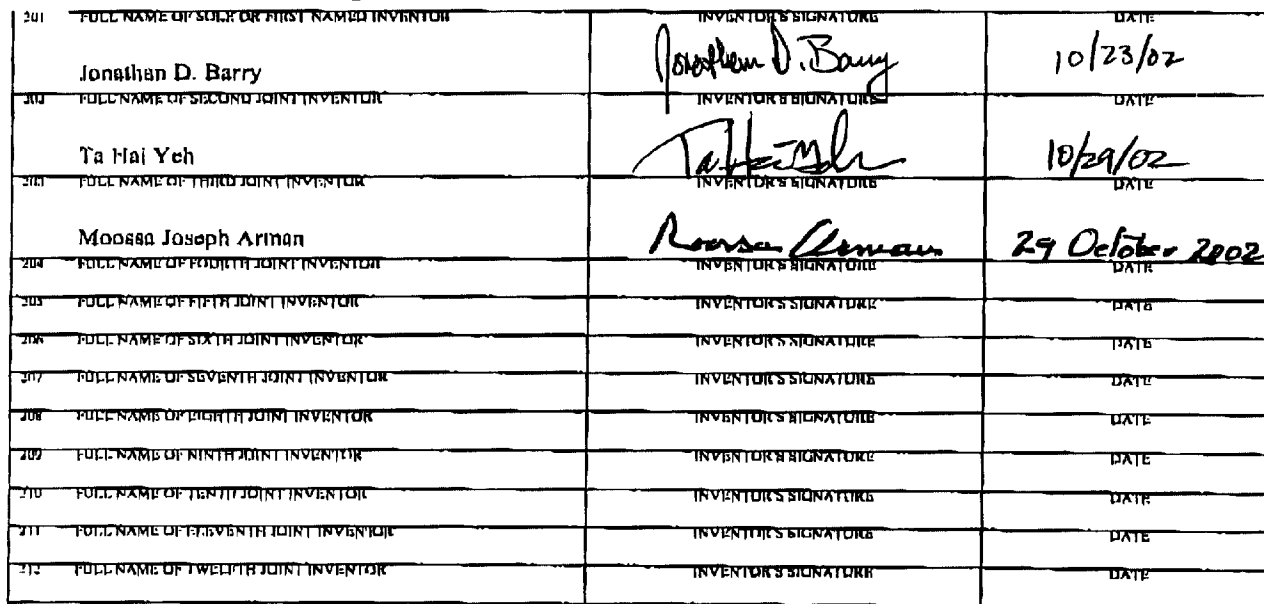 201 FULL NAME OF SOLE OR FIRST NAMED INVENTOR INVENTOR'S SIGNATURE DATE
Jonathan D. Barry Jonathan D. Barry 10/23/02
202 FULL NAME OF SECOND JOINT INVENTOR INVENTOR'S SIGNATURE DATE
Ta Hai Yeh Ta Hai Yeh 10/29/02
203 FULL NAME OF THIRD JOINT INVENTOR INVENTOR'S SIGNATURE DATE
Moossa Joseph Arman Moossa Arman 29 October 2002
204 FULL NAME OF FOURTH JOINT INVENTOR INVENTOR'S SIGNATURE DATE
205 FULL NAME OF FIFTH JOINT INVENTOR INVENTOR'S SIGNATURE DATE
206 FULL NAME OF SIXTH JOINT INVENTOR INVENTOR'S SIGNATURE DATE
207 FULL NAME OF SEVENTH JOINT INVENTOR INVENTOR'S SIGNATURE DATE
208 FULL NAME OF EIGHTH JOINT INVENTOR INVENTOR'S SIGNATURE DATE
209 FULL NAME OF NINTH JOINT INVENTOR INVENTOR'S SIGNATURE DATE
210 FULL NAME OF TENTH JOINT INVENTOR INVENTOR'S SIGNATURE DATE
211 FULL NAME OF ELEVENTH JOINT INVENTOR INVENTOR'S SIGNATURE DATE
212 FULL NAME OF TWELFTH JOINT INVENTOR INVENTOR'S SIGNATURE DATE